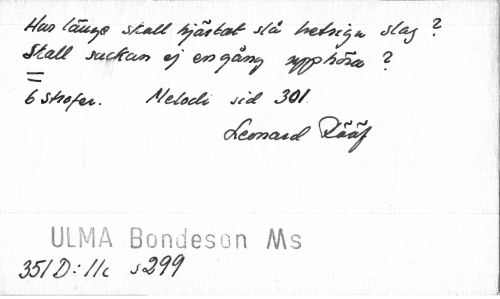 Hur länge skall hjärtat slå hetsiga slag?
Skall suckan ej en gång upphöra?
=
6 strofer. Melodi sid 301.
Leonard Rääf
ULMA Bondeson Ms
351 D: 11c s299